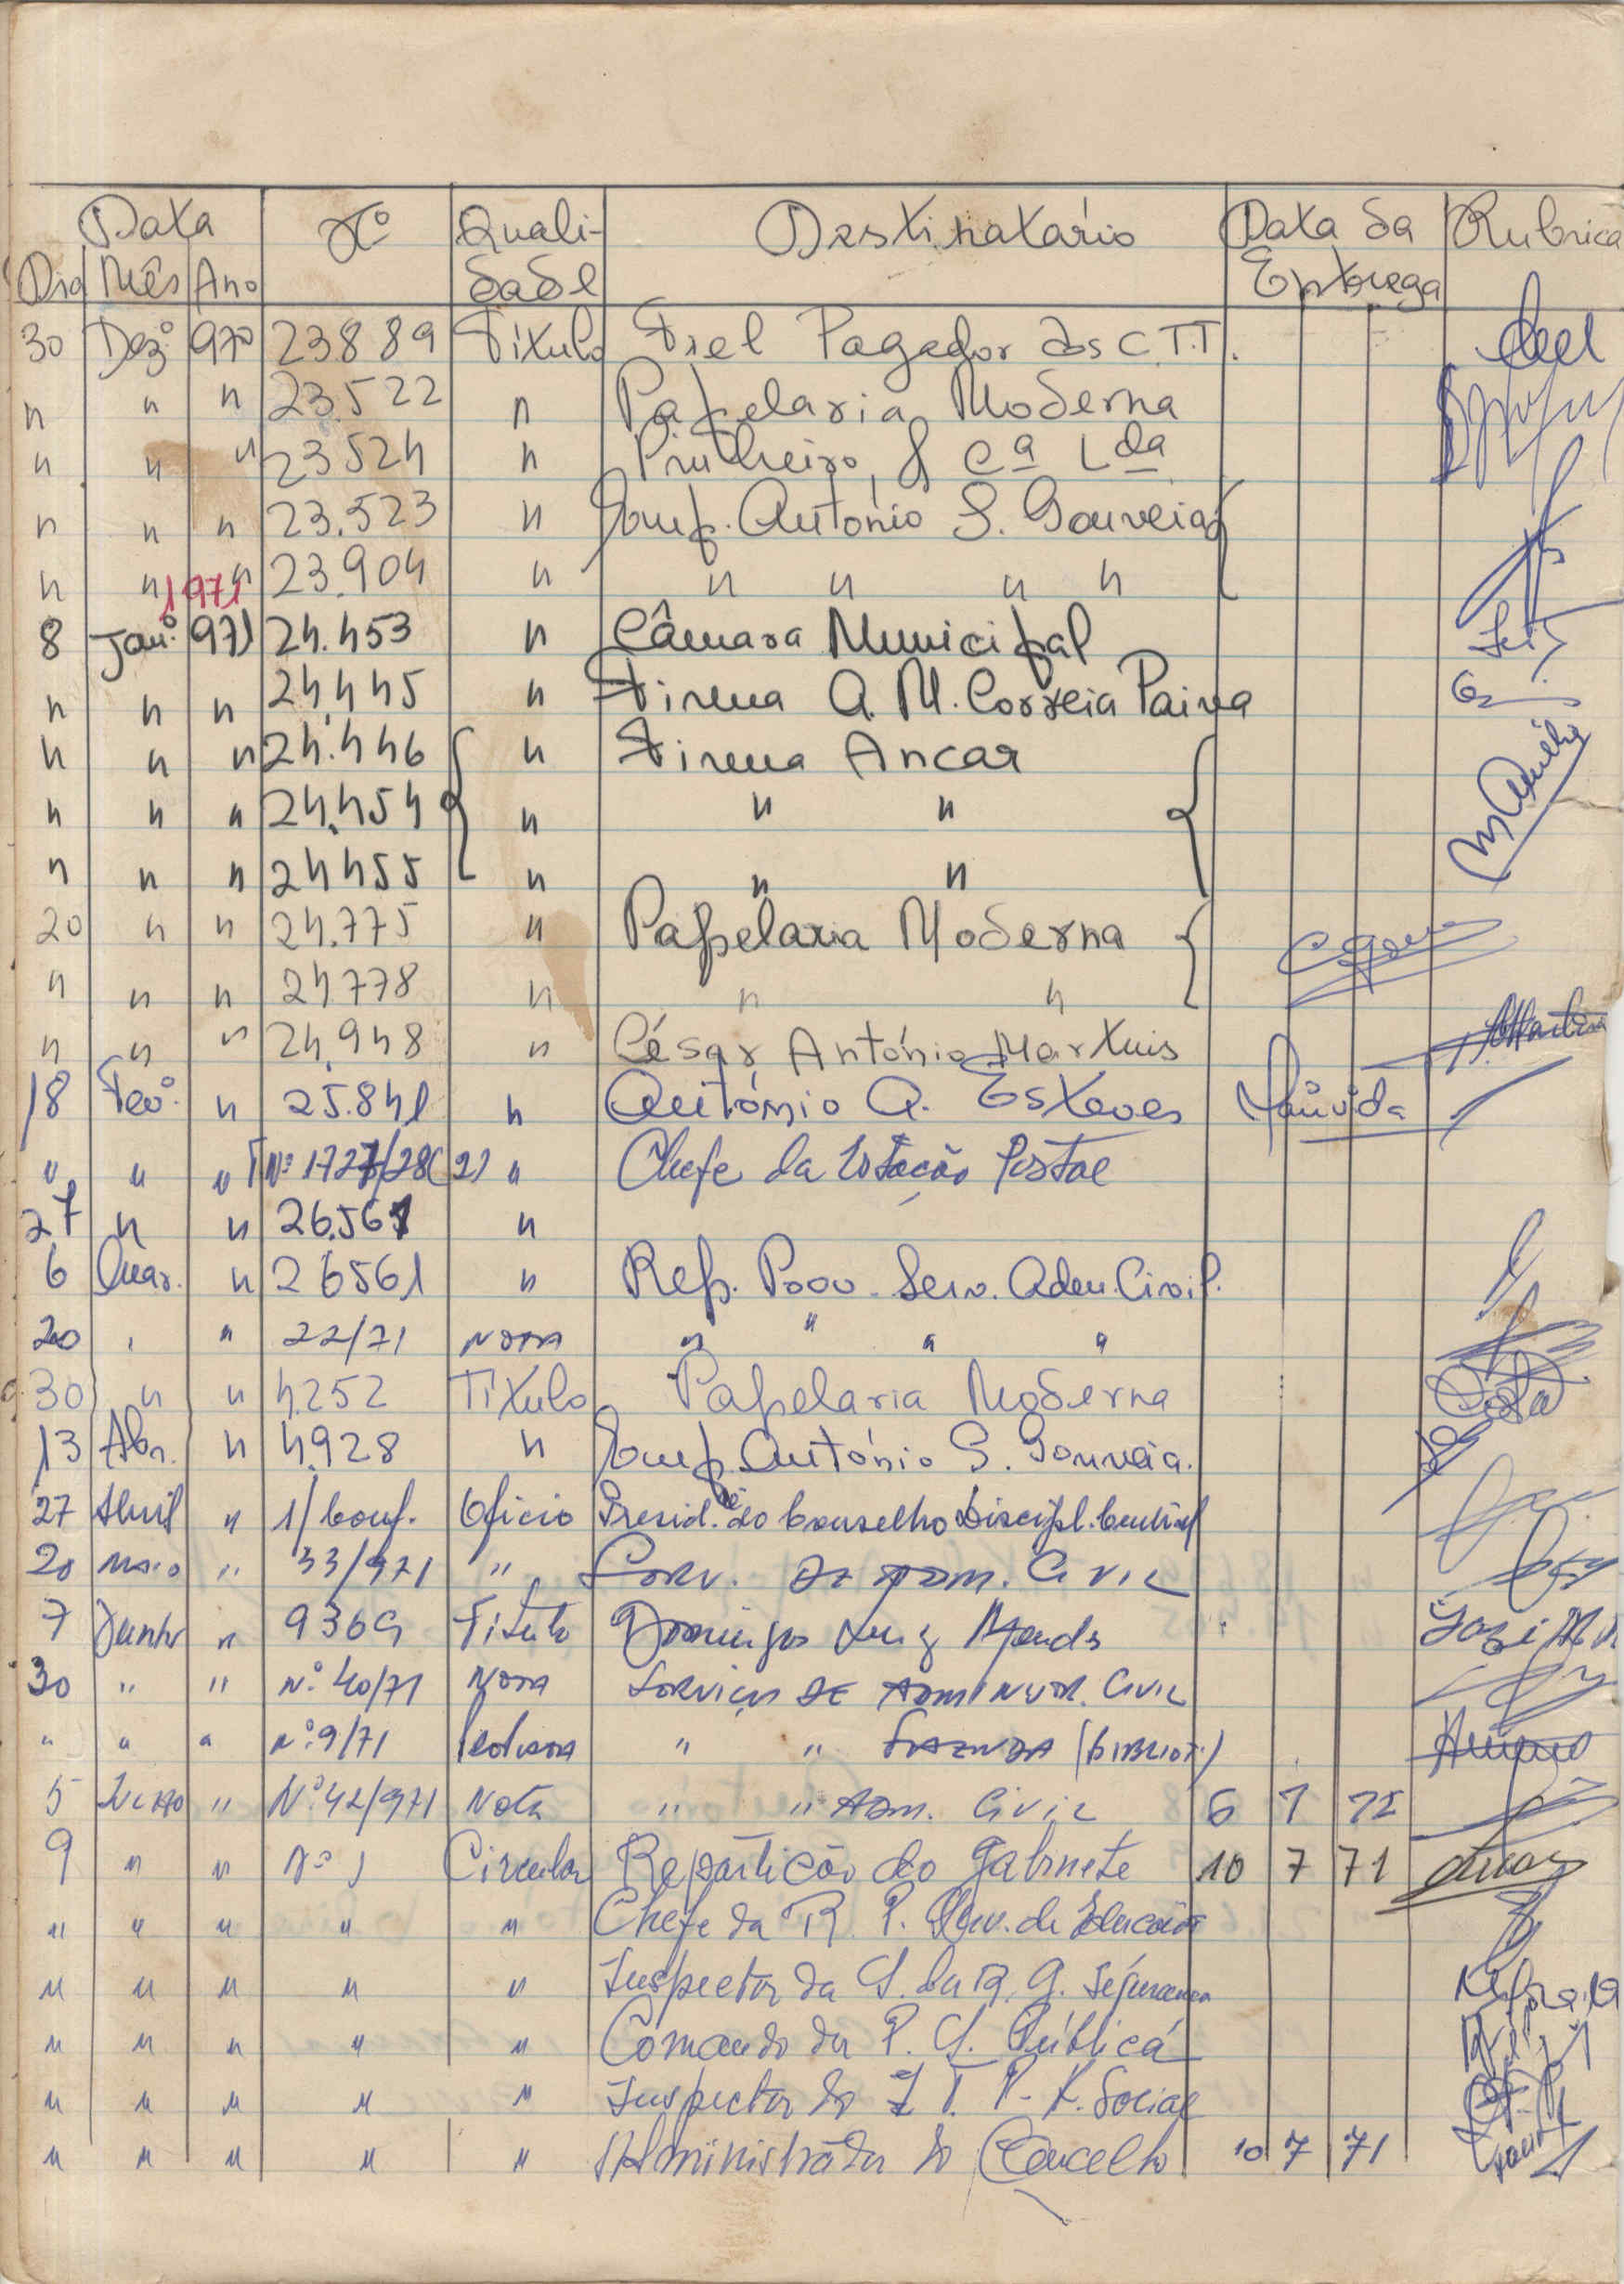 Data Nº Quali- Destinatário Data da Rubrica
Dia Mês Ano dade Entrega
30 Dezº 970 23889 Título Fiel Pagador dos C.T.T.
" " " 23.522 " Papelaria Moderna
" " " 23524 " Pinheiro, & Cª Lda
" " " 23.523 " Comp. António S. Gouveia
" " " 23.904 " " " " "
1971
8 Janº 971 24.453 " Câmara Municipal
" " " 24.445 " Firma A. M. Correia Paiva
" " " 24.446 " Firma Ancar
" " " 24.454 " " "
" " " 24455 " " "
20 " " 24.775 " Papelaria Moderna
" " " 24778 " " "
" " " 24.948 " César António Martuis
18 Fevº " 25.841 " António A. Esteves
" " " Nº 1727/28(2) " Chefe da Estação Postal
27 " " 26.561 "
6 Mar. " 26561 " Rep. Prov. Serv. Adm. Civil.
20 " " 22/71 Nota " " " "
30 " " 4.252 Título Papelaria Moderna
13 Abr. " 4.928 " Comp. António S. Gouveia.
27 Abril " 1/Conf. Oficio Presid.te do Conselho Discipl. Central
20 Maio " 33/971 " Serv. de Adm. Civil
7 Junho " 9369 Título Domingos Luiz Mends
30 " " Nº 40/71 Nota Serviços de Administr. Civil
" " " nº 9/71 " " Fazenda (Bibliot.)
5 Julho " Nº 42/971 Nota " " Adm. Civil 6 7 71
9 " " Nº 1 Circular Repartição do Gabinete 10 7 71
" " " " " Chefe da R. P. Serv. de Educação
" " " " " Inspector da Segurança
" " " " " Comando da P. S. Pública
" " " " " Inspector do I. T. P. Social
" " " " " Administrador do Concelho 10 7 71